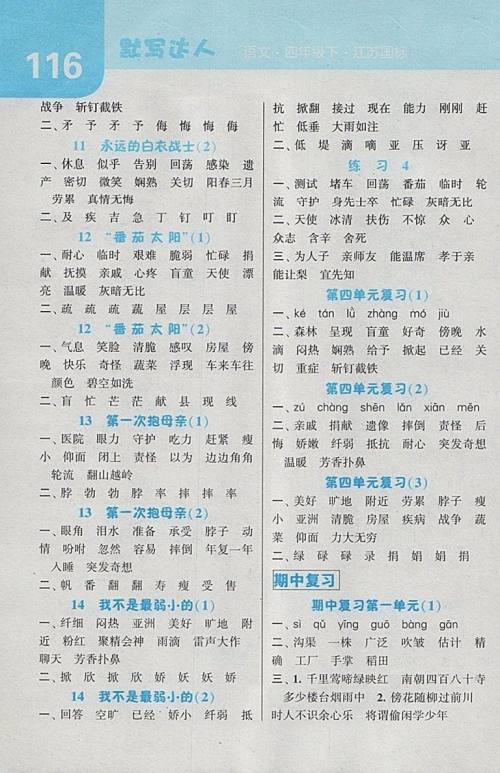 116
默写达人 语文·四年级下·江苏国标
战争 斩钉截铁
二、矛 予 矛 予 侮 悔 侮 悔
11 永远的白衣战士(2)
一、休息 似乎 告别 回荡 感染 遗
产 密切 微笑 娴熟 关切 阳春三月
劳累 真情无悔
二、及 疾 吉 急 丁 钉 叮 盯
12 “番茄太阳”(1)
一、耐心 临时 艰难 脆弱 忙碌 捐
献 抚摸 亲戚 心疼 盲童 天使 漂
亮 温暖 灰暗无比
二、疏 蔬 蔬 疏 层 屋 层 屋
12 “番茄太阳”(2)
一、气息 笑脸 清脆 感叹 房屋 傍
晚 快乐 奇怪 蔬菜 浮现 车来车往
颜色 碧空如洗
二、盲 忙 芒 茫 献 县 现 线
13 第一次抱母亲(1)
一、医院 眼力 守护 吃力 赶紧 瘦
小 仰面 闭上 责怪 以为 边边角角
轮流 翻山越岭
二、脖 勃 勃 脖 率 摔 摔 率
13 第一次抱母亲(2)
一、眼角 泪水 准备 承受 脖子 动
情 吩咐 忽然 容易 摔倒 年复一年
入睡 突发奇想
二、帆 番 翻 翻 寿 瘦 受 售
14 我不是最弱小的(1)
一、纤细 闷热 亚洲 美好 旷地 附
近 粉红 聚精会神 雨滴 雷声大作
聊天 芳香扑鼻
二、掀 欣 掀 欣 娇 妖 妖 娇
14 我不是最弱小的(2)
一、回答 空旷 已经 娇小 纤弱 抵
抗 掀翻 接过 现在 能力 刚刚 赶
忙 低垂 大雨如注
二、低 堤 滴 嘀 亚 压 讶 亚
练习 4
一、测试 堵车 回荡 番茄 临时 轮
流 守护 身先士卒 忙碌 灰暗无比
二、天使 冰清 扶伤 不惊 众 心
众志 含辛 舍死
三、为人子 亲师友 能温席 孝于亲
能让梨 宜先知
第四单元复习(1)
一、ké tán lǜ zhǎng mó jiù
二、森林 呈现 盲童 好奇 傍晚 水
滴 闷热 娴熟 给予 掀起 已经 关
切 重症 斩钉截铁
第四单元复习(2)
一、zú chàng shēn lěn xiān mēn
二、亲戚 捐献 遗像 摔倒 责怪 后
悔 娇嫩 纤弱 抵抗 突发奇想
温暖 芳香扑鼻
第四单元复习(3)
一、美好 旷地 附近 劳累 脖子 瘦
小 亚洲 清脆 房屋 疾病 战争 蔬
菜 仰面 力大无穷
二、绿 碌 碌 录 捐 娟 娟 捐
期中复习
期中复习第一单元(1)
一、sì qǔ yīng guō bàng gān
二、沟渠 一株 广泛 吹皱 估计 精
确 工厂 手掌 稻田
三、1.千里莺啼绿映红 南朝四百八十寺
多少楼台烟雨中 2.傍花随柳过前川
时人不识余心乐 将谓偷闲学少年